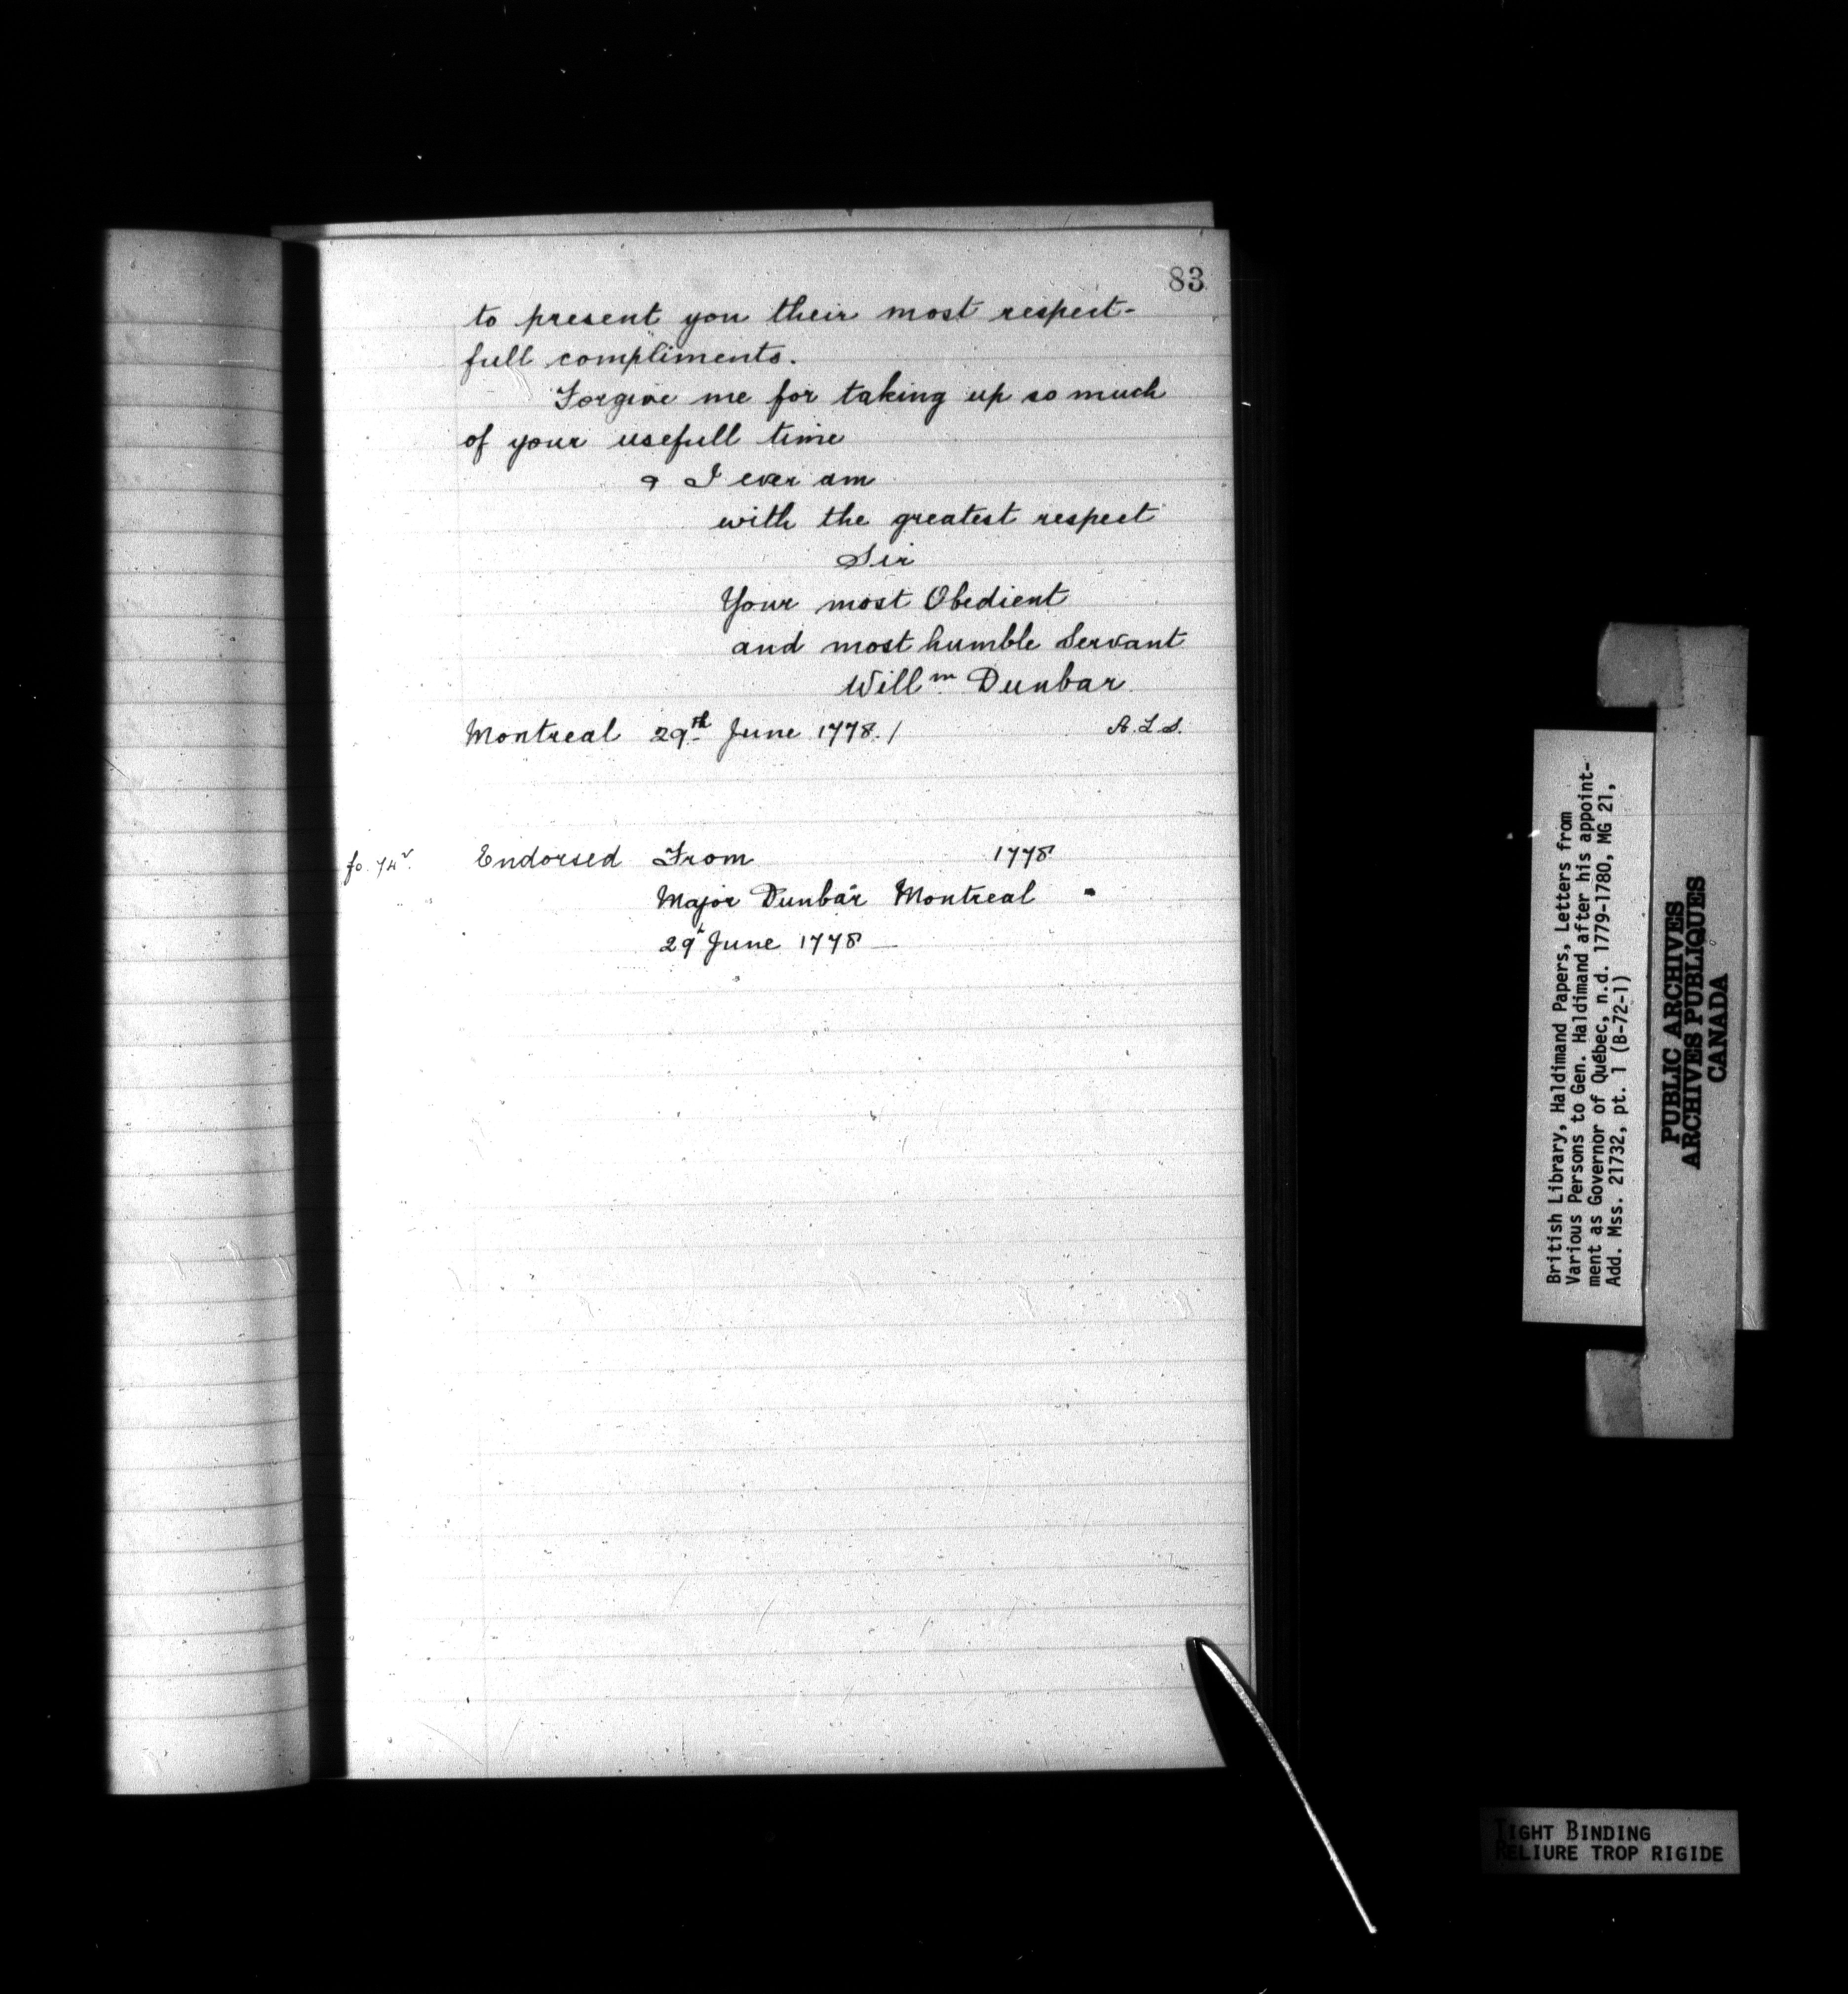 83
to present you their most respect-
full compliments.
Forgive me for taking up so much
of your usefull time
& I ever am
with the greatest respect
Sir
Your most Obedient
and most humble Servant
Willm Dunbar
Montreal 29th June 1778./ A.L.S.
fo. 74v.
Endorsed From 1778
Major Dunbar Montreal
29th June 1778 —
British Library, Haldimand Papers, Letters from
Various Persons to Gen. Haldimand after his appoint-
ment as Governor of Québec, n.d. 1779-1780, MG 21,
Add. Mss. 21732, pt. 1 (B-72-1)
PUBLIC ARCHIVES
ARCHIVES PUBLIQUES
CANADA
TIGHT BINDING
RELIURE TROP RIGIDE